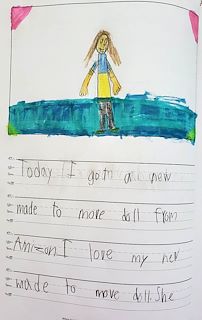 Today I go to a new
made to move doll from
Amizon I love my new
made to move doll. She